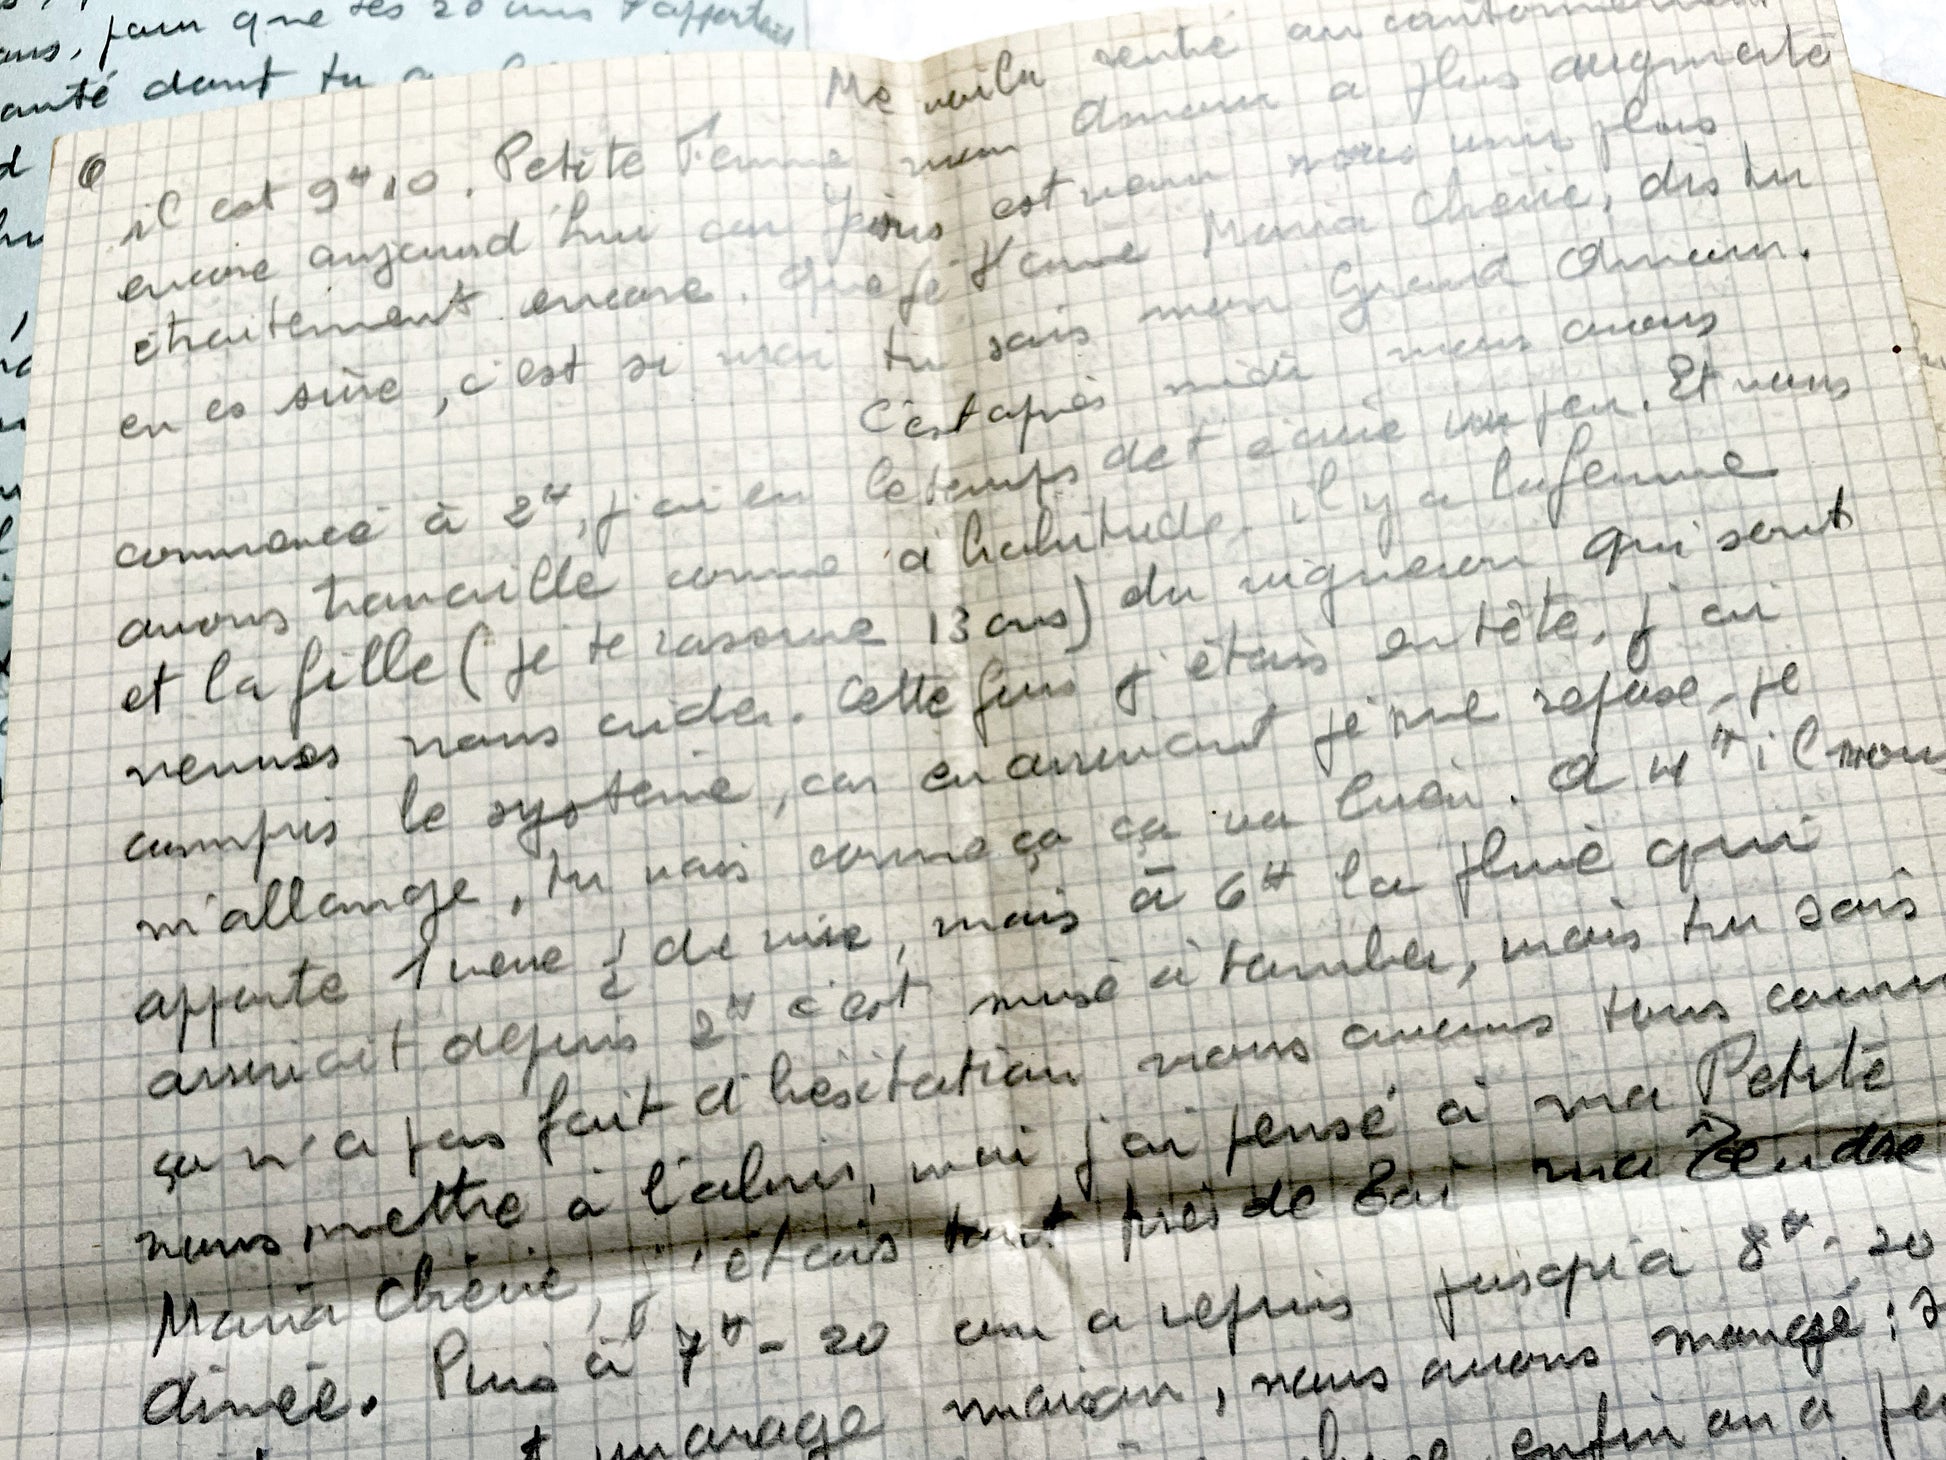 ans, pour que tes 20 ans t'apporten
anté dont tu
6
Me voilà rentré au cantonnement
il est 9H10. Petite Femme mon Amour a plus augmenté
encore aujourd'hui car Jésus est venu nous unir plus
étroitement encore. Que je t'aime Maria Chérie, dis tu
en es sûre, c'est si vrai tu sais mon Grand Amour.
C'est après midi nous avons
commencé à 2H, j'ai eu le temps de t'écrire un peu. Et nous
avons travaillé comme d'habitude. il y a la femme
et la fille (je te rassure 13 ans) du vigneron qui sont
venues nous aider. Cette fois j'étais en tête, j'ai
compris le système, car en arrivant je me repose, je
m'allonge, tu vois comme ça ça va bien. A 4H il nous
apporte 1 verre ½ de vin, mais à 6H la pluie qui
arrivait depuis 2H c'est mise à tomber, mais tu sais
ça n'a pas fait d'hésitation nous avons tous couru
nous mettre à l'abri, moi j'ai pensé à ma Petite
Maria Chérie, j'étais tout près de Toi ma Tendre
Aimée. Puis à 7H-20 on a repris jusqu'à 8H-20
maison, nous avons mangé :
enfin on a